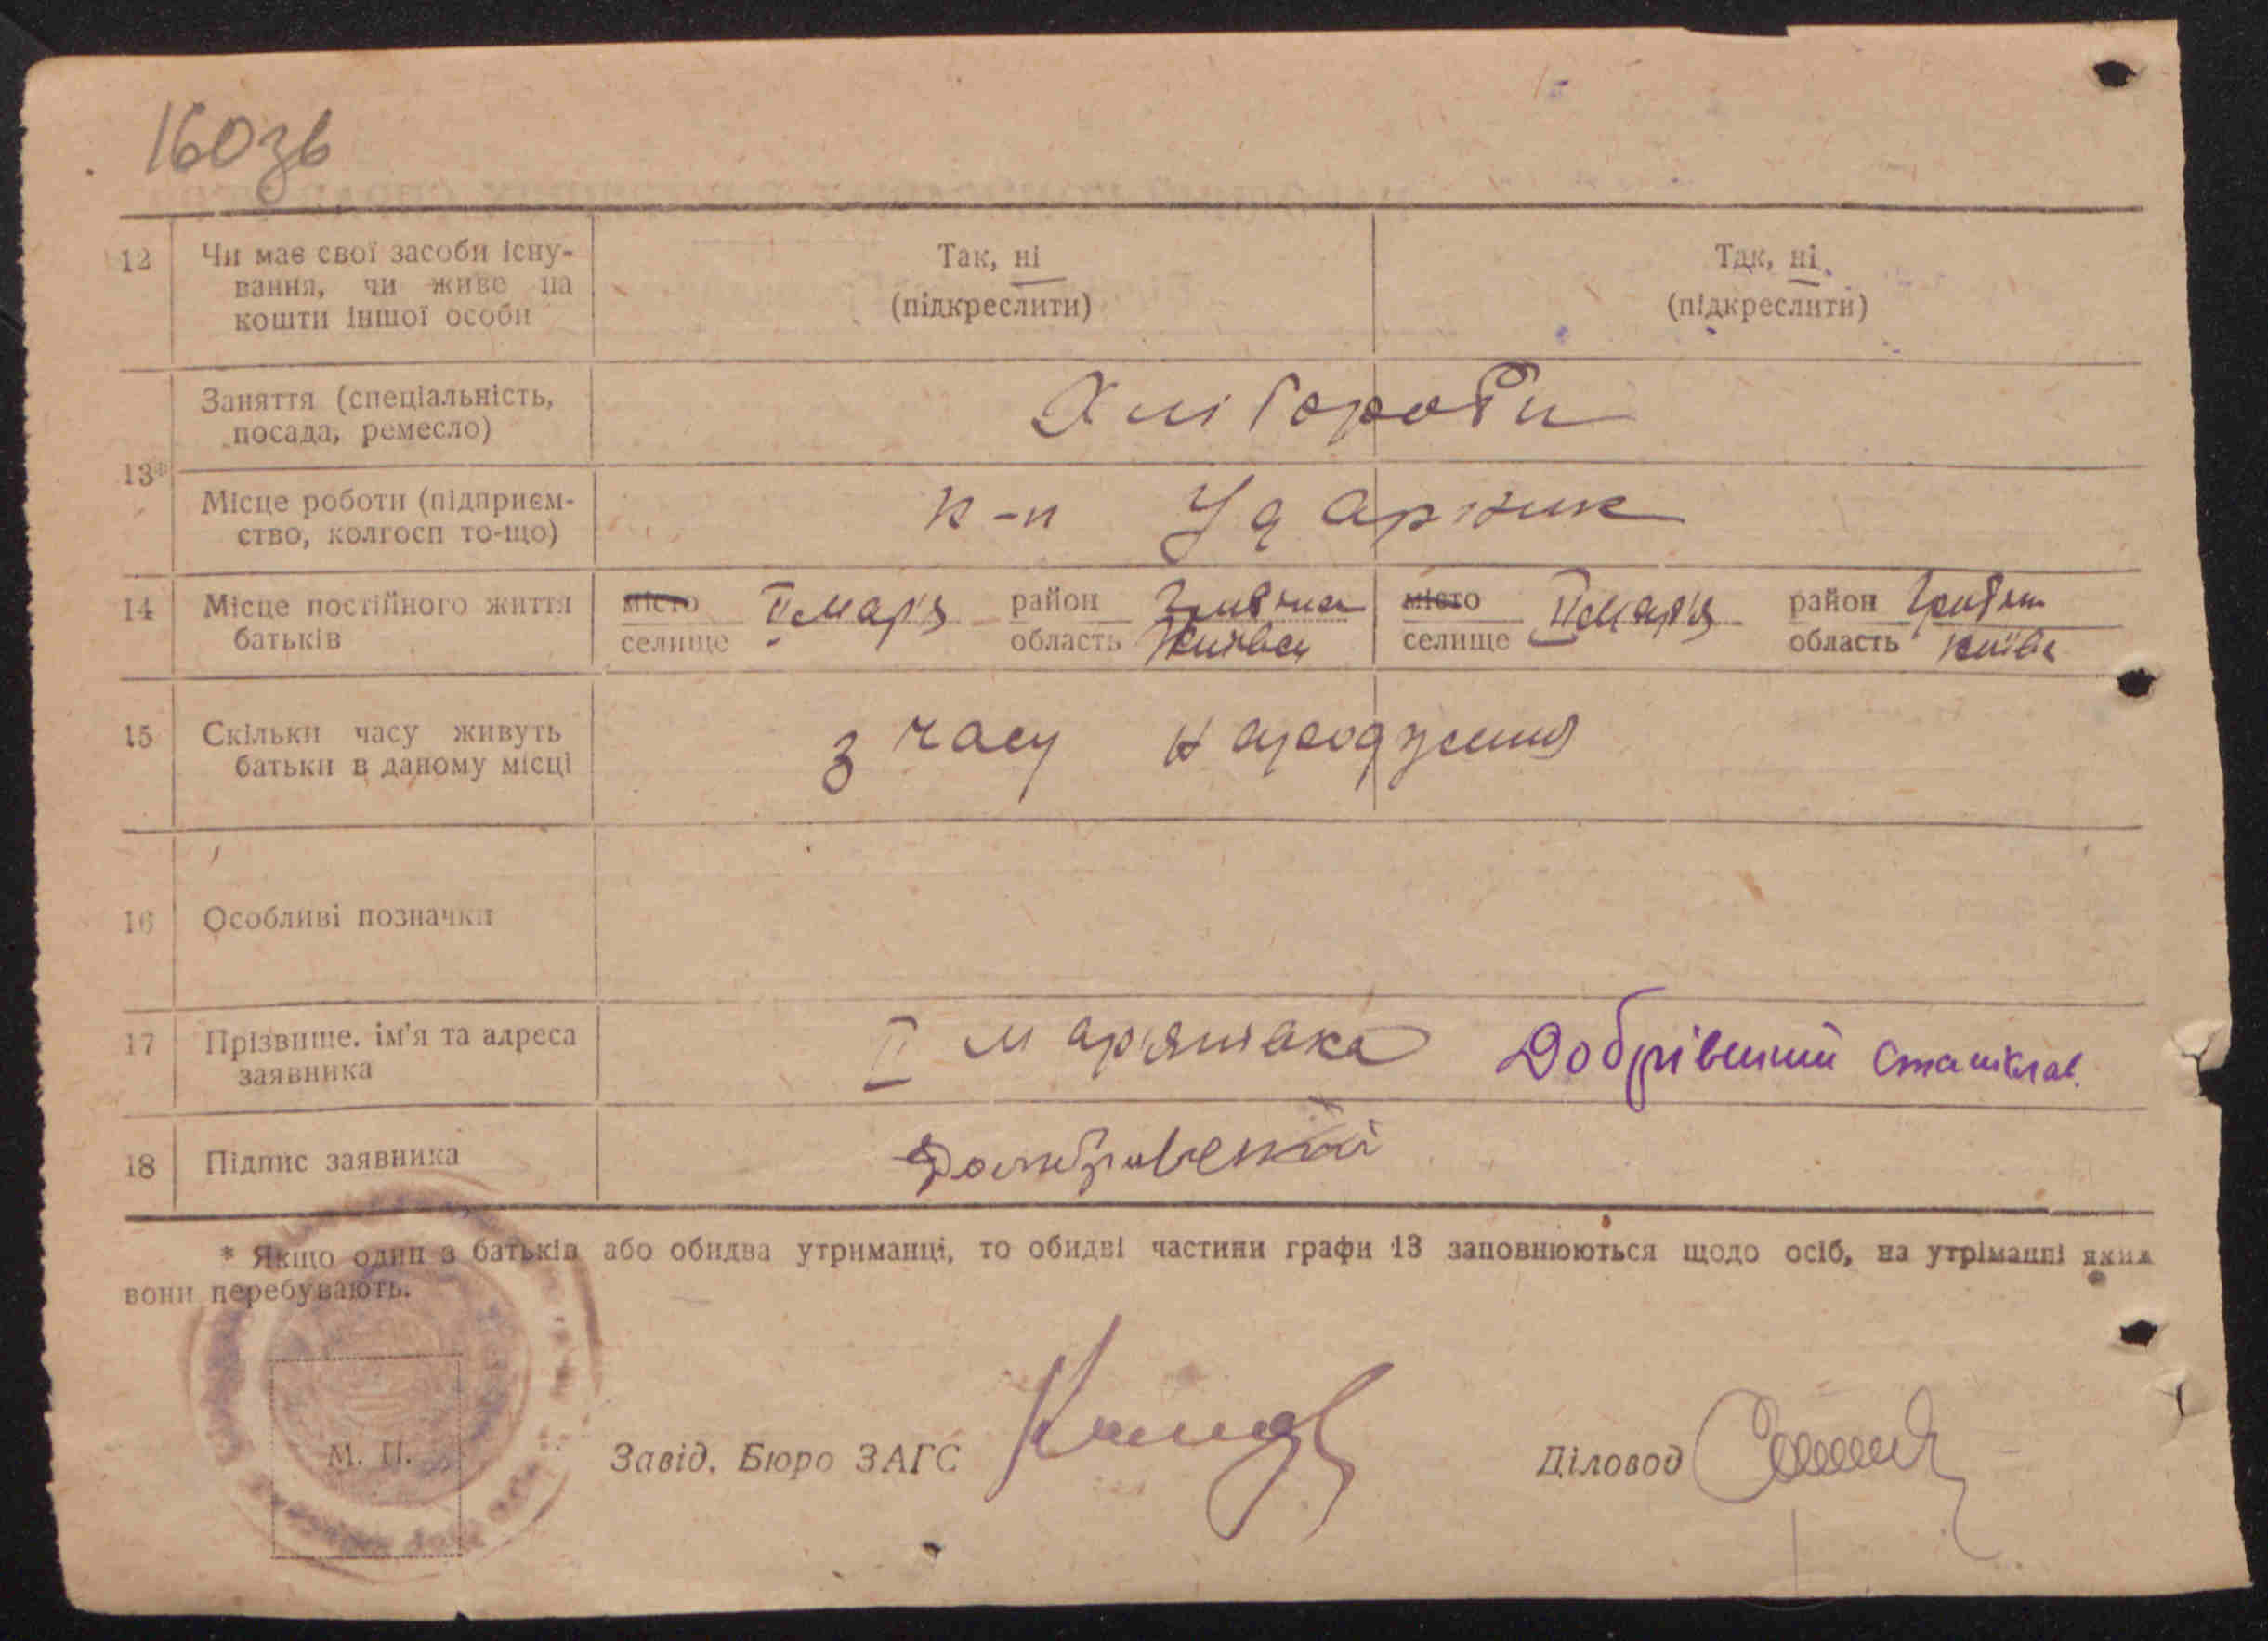 160зв
12 Чи має свої засоби існу-
вання, чи живе на
кошти іншої особи
Так, ні
(підкреслити)
Так, ні
(підкреслити)
13*
Заняття (спеціальність,
посада, ремесло)
Хлібороби
Місце роботи (підприєм-
ство, колгосп то-що)
к-п Ударник
14 Місце постійного життя
батьків
місто
селище
ІІ Мар'я
район
область
Київськ
місто
селище
ІІ Мар'я
район
область
Київс
15 Скільки часу живуть
батьки в даному місці
з часу народження
16 Особливі позначки
17 Прізвище, ім'я та адреса
заявника
ІІ Мар'янівка Добрівський Станіслав.
18 Підпис заявника
* Якщо один з батьків або обидва утриманці, то обидві частини графи 13 заповнюються щодо осіб, на утріманні яких
вони перебувають.
М. П.
Завід. Бюро ЗАГС
Діловод